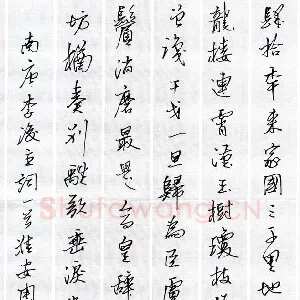 肆拾年來家國三千里地
龍樓連霄漢玉樹瓊枝
曾識干戈一旦歸為臣虜
鬢消磨最是倉皇辭
坊猶奏別離歌垂淚
南唐李後主詞一首雅安周
Shufawang.CN